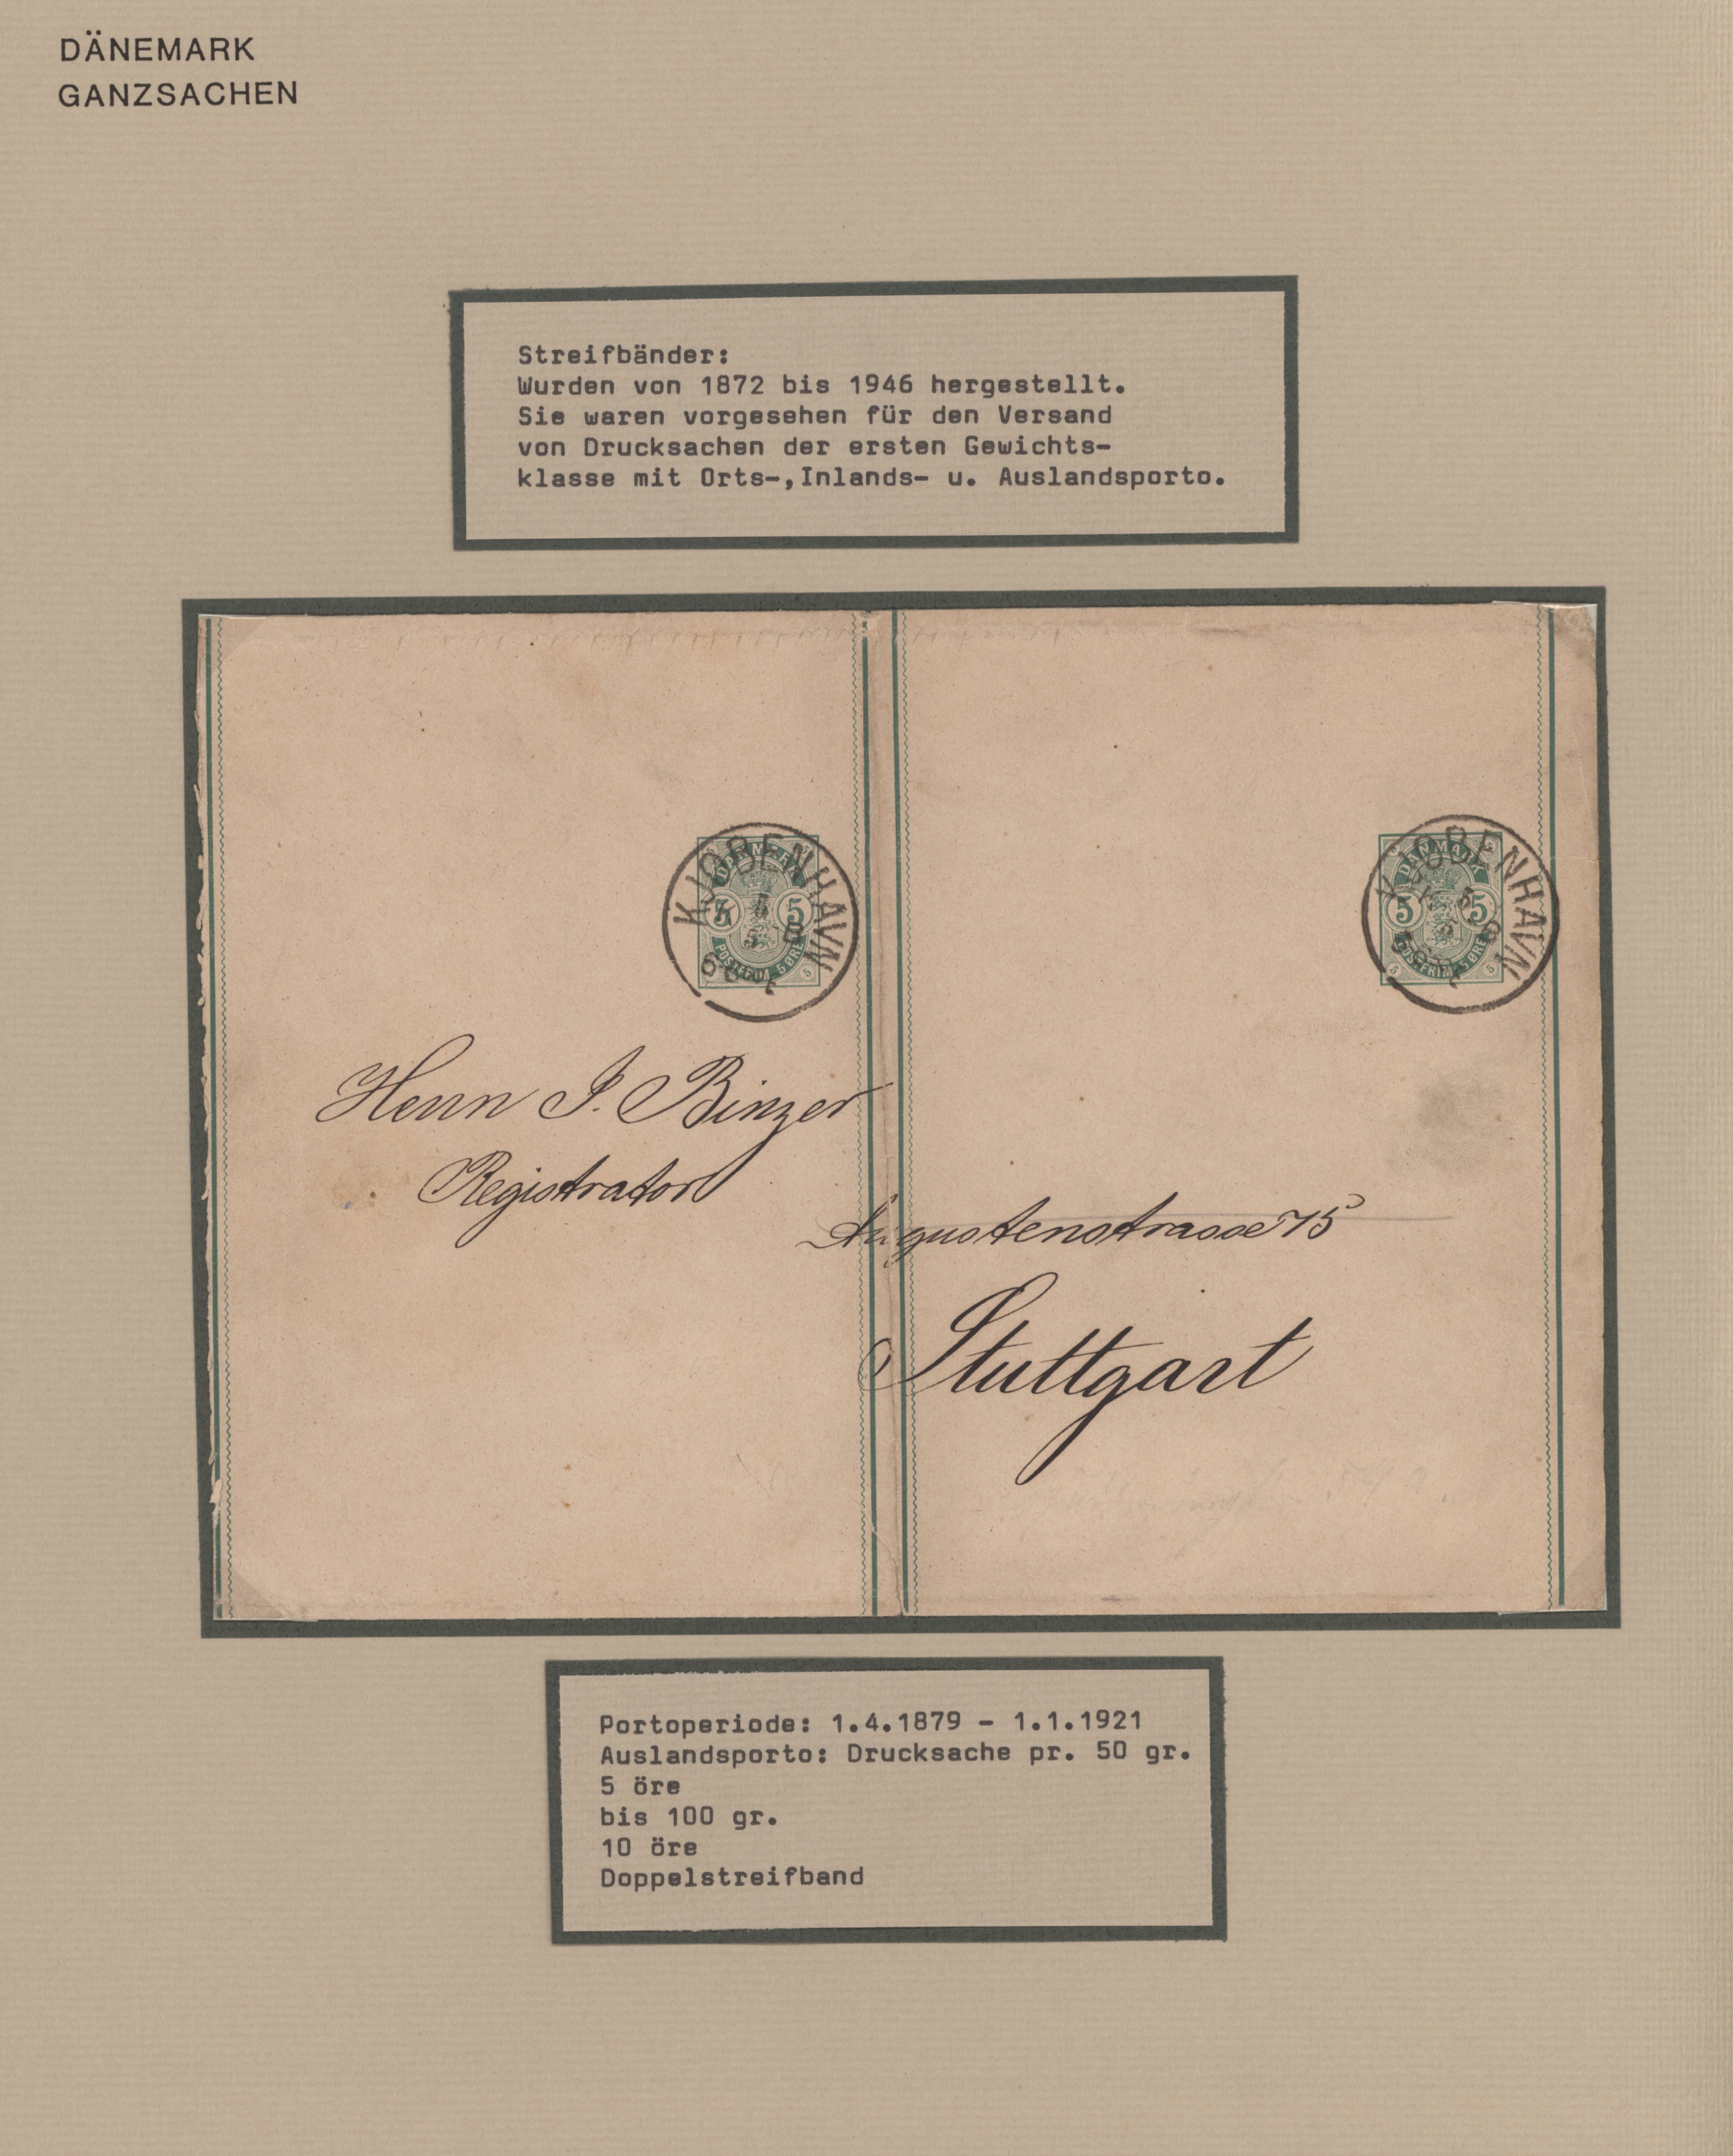 DÄNEMARK
GANZSACHEN
Streifbänder:
Wurden von 1872 bis 1946 hergestellt.
Sie waren vorgesehen für den Versand
von Drucksachen der ersten Gewichts-
klasse mit Orts-,Inlands- u. Auslandsporto.
KJØBENHAVN
DANMARK
5 5
POSTFRIM. 5 ØRE
KJØBENHAVN
DANMARK
5 5
POSTFRIM. 5 ØRE
Herrn J. Binzer
Registrator
Augustenstrasse 75
Stuttgart
Portoperiode: 1.4.1879 - 1.1.1921
Auslandsporto: Drucksache pr. 50 gr.
5 öre
bis 100 gr.
10 öre
Doppelstreifband